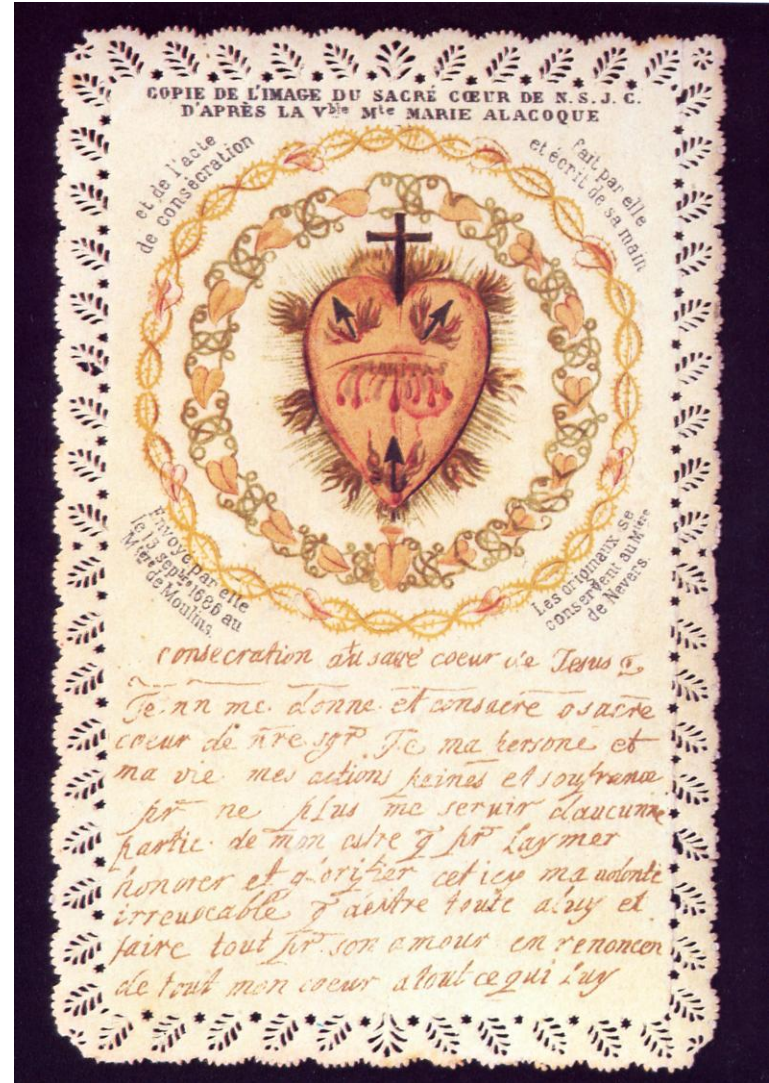 COPIE DE L'IMAGE DU SACRÉ CŒUR DE N.S.J.C.
D'APRÈS LA Vble Mte MARIE ALACOQUE
et de l'acte
de consécration
fait par elle
et écrit de sa main
CHARITAS
Envoyé par elle
le 13 Sepbre 1686 au
Mtère de Moulins.
Les originaux se
conservent au Mtère
de Nevers.
consecration au sacré coeur de Jesus
Je nn me donne et consacre o sacre
coeur de nre sgr Je ma persone et
ma vie mes actions peines et soufrence
pr ne plus me servir daucunne
partie de mon estre q pr Laymer
honorer et glorifier cet icy ma volonte
irrevocable q destre toute aluy et
faire tout pr son amour en renoncen
de tout mon coeur a tout ce qui Luy